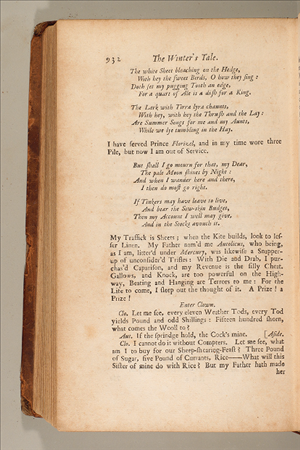 932 The Winter's Tale.
The white Sheet bleaching on the Hedge,
With hey the sweet Birds, O how they sing:
Doth set my pugging Tooth an edge,
For a quart of Ale is a dish for a King.
The Lark with Tirra lyra chaunts,
With hey, with hey the Thrush and the Jay:
Are Summer Songs for me and my Aunts,
While we lye tumbling in the Hay.
I have served Prince Florizel, and in my time wore three
Pile, but now I am out of Service.
But shall I go mourn for that, my Dear,
The pale Moon shines by Night:
And when I wander here and there,
I then do most go right.
If Tinkers may have leave to live,
And bear the Sow-skin Budget,
Then my Account I well may give,
And in the Stocks avouch it.
My Traffick is Sheets; when the Kite builds, look to les-
ser Linnen. My Father nam'd me Autolicus, who being,
as I am, litter'd under Mercury, was likewise a Snapper-
up of unconsider'd Trifles: With Die and Drab, I pur-
chas'd Caparison, and my Revenue is the silly Cheat.
Gallows, and Knock, are too powerful on the High-
way, Beating and Hanging are Terrors to me: For the
Life to come, I sleep out the thought of it. A Prize! a
Prize!
Enter Clown.
Clo. Let me see, every eleven Weather Tods, every Tod
yields Pound and odd Shilling: Fifteen hundred shorn,
what comes the Wooll to?
Aut. If the sprindge hold, the Cock's mine. [Aside.
Clo. I cannot do it without Compters. Let me see, what
am I to buy for our Sheep-shearing-Feast? Three Pound
of Sugar, five Pound of Currants, Rice——What will this
Sister of mine do with Rice? But my Father hath made
her